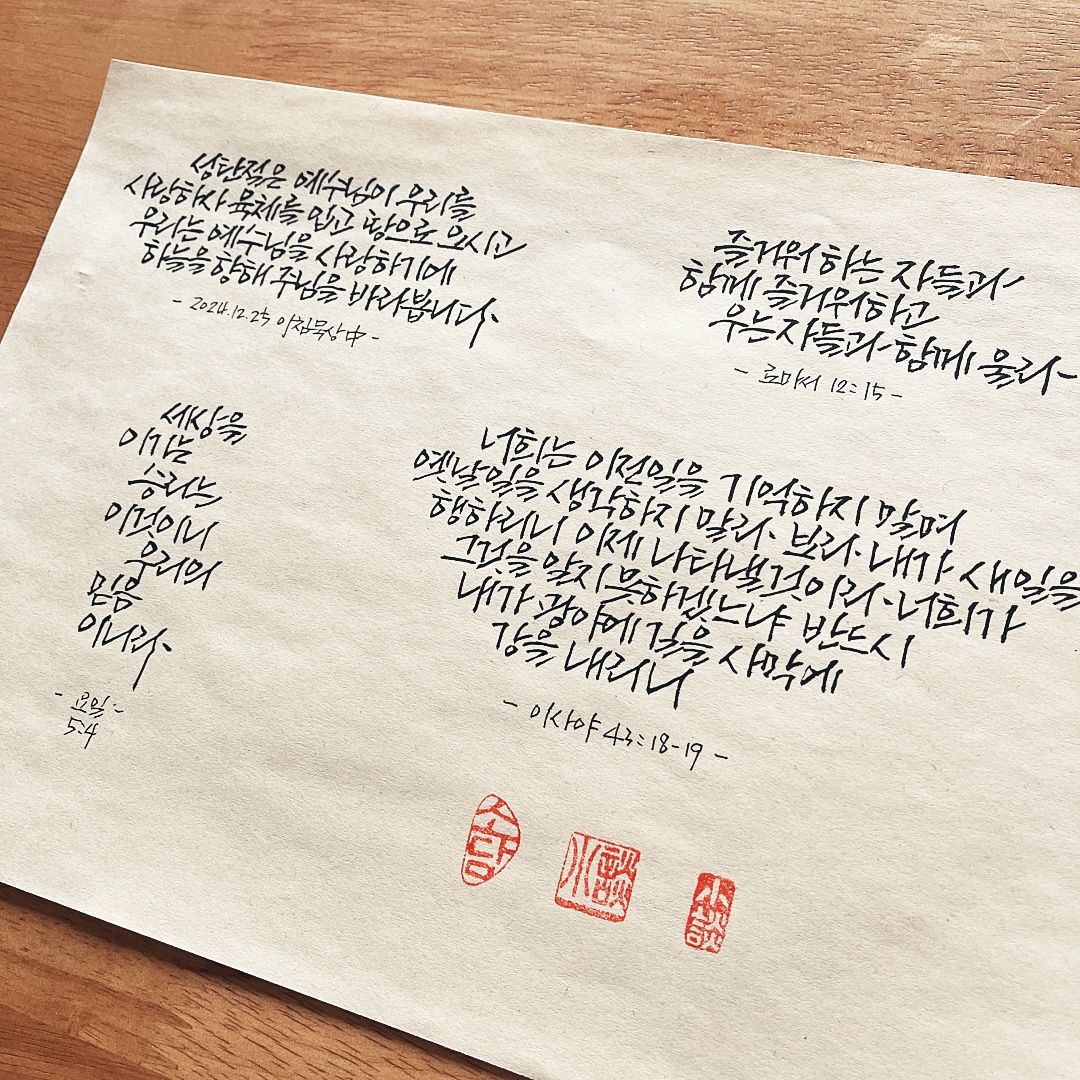 성탄절은 예수님이 우리를
사랑하사 육체를 입고 땅으로 오시고
우리는 예수님을 사랑하기에
하늘을 향해 주님을 바라봅니다.
- 2024.12.25 아침묵상 中 -
즐거워하는 자들과
함께 즐거워하고
우는 자들과 함께 울라
- 로마서 12:15 -
세상을
이기는
승리는
이것이니
우리의
믿음
이니라.
- 요일 -
5:4
너희는 이전일을 기억하지 말며
옛날일을 생각하지 말라. 보라. 내가 새일을
행하리니 이제 나타낼 것이라. 너희가
그것을 알지 못하겠느냐 반드시
내가 광야에 길을 사막에
강을 내리니
- 이사야 43:18-19 -
소담
小談
小談